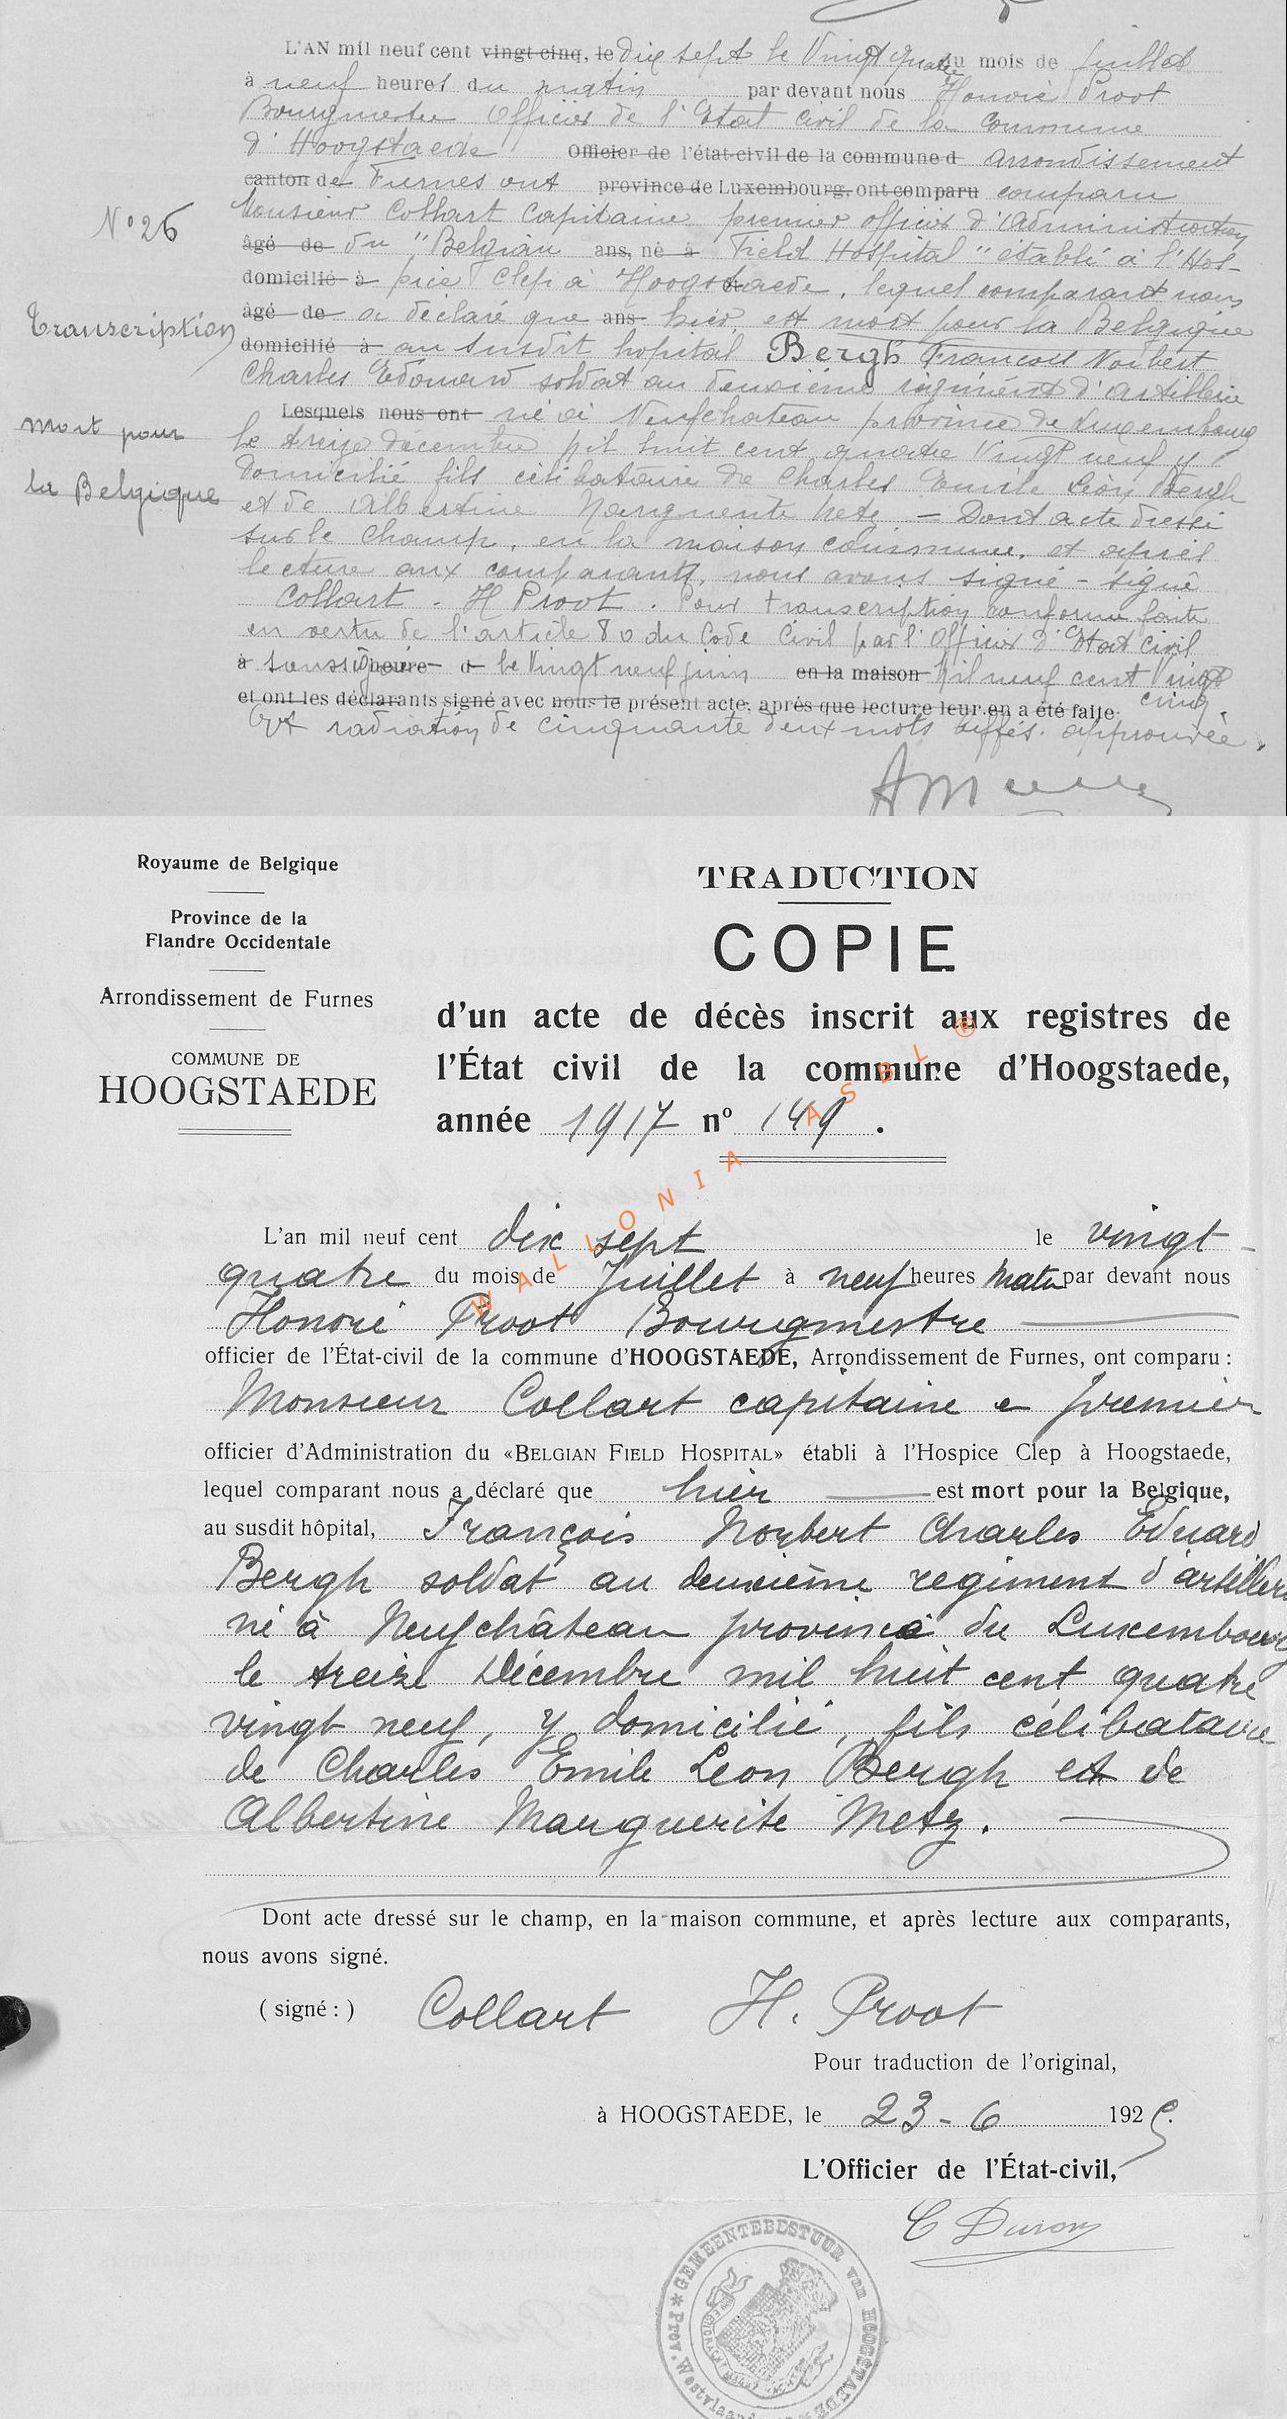 L'AN mil neuf cent vingt-cinq, le dix sept le Vingt quatre du mois de juillet
à neuf heures du matin par devant nous Honoré Proot
Bourgmestre Officier de l'Etat Civil de la Commune
d'Hoogstaede Officier de l'état-civil de la commune d arrondissement
canton de Furnes ont province de Luxembourg, ont comparu comparu
Monsieur Collart Capitaine premier officier d'Administration
N° 26
âgé de du "Belgian ans, né à Field Hospital" établi à l'Hos-
domicilié à pice Clep à Hoogstaede, lequel comparant nous
âgé de a déclaré que ans hier est mort pour la Belgique
Transcription
domicilié à au susdit hopital Bergh Francois Norbert
Charles Edouard soldat au deuxième régiment d'artillerie
Mort pour
la Belgique
Lesquels nous ont né à Neufchateau province de Luxembourg
le treize décembre mil huit cent quatre Vingt neuf y
domicilié fils célibataire de Charles Emile Léon Bergh
et de Albertine Marguerite Metz – Dont acte dressé
sur le champ, en la maison commune, et après
lecture aux comparants, nous avons signé – signé
Collart - H Proot. Pour transcription conforme faite
en vertu de l'article 80 du Code Civil par l'Officier d'Etat civil
à soussigné heure d le Vingt neuf juin en la maison Mil neuf cent Vingt
et ont les déclarants signé avec nous le présent acte, après que lecture leur en a été faite cinq.
Et radiation de cinquante deux mots biffés approuvée.
Royaume de Belgique
Province de la
Flandre Occidentale
Arrondissement de Furnes
COMMUNE DE
HOOGSTAEDE
TRADUCTION
COPIE
d'un acte de décès inscrit aux registres de
l'État civil de la commune d'Hoogstaede,
année 1917 n° 149.
WALLONIA ASBL ®
L'an mil neuf cent dix sept le vingt-
quatre du mois de Juillet à neuf heures matin par devant nous
Honoré Proot Bourgmestre
officier de l'État-civil de la commune d'HOOGSTAEDE, Arrondissement de Furnes, ont comparu :
Monsieur Collart capitaine e premier
officier d'Administration du «BELGIAN FIELD HOSPITAL» établi à l'Hospice Clep à Hoogstaede,
lequel comparant nous a déclaré que hier est mort pour la Belgique,
au susdit hôpital, François Norbert Charles Eduard
Bergh soldat au deuxième regiment d'artillerie
né à Neufchâteau province du Luxembourg
le treize Décembre mil huit cent quatre
vingt neuf, y domicilié, fils célibataire
de Charles Emile Leon Bergh et de
Albertine Marguerite Metz.
Dont acte dressé sur le champ, en la maison commune, et après lecture aux comparants,
nous avons signé.
(signé :) Collart H. Proot
Pour traduction de l'original,
à HOOGSTAEDE, le 23-6 1925.
L'Officier de l'État-civil,
GEMEENTEBESTUUR van HOOGSTAEDE * Prov. Westvlaanderen